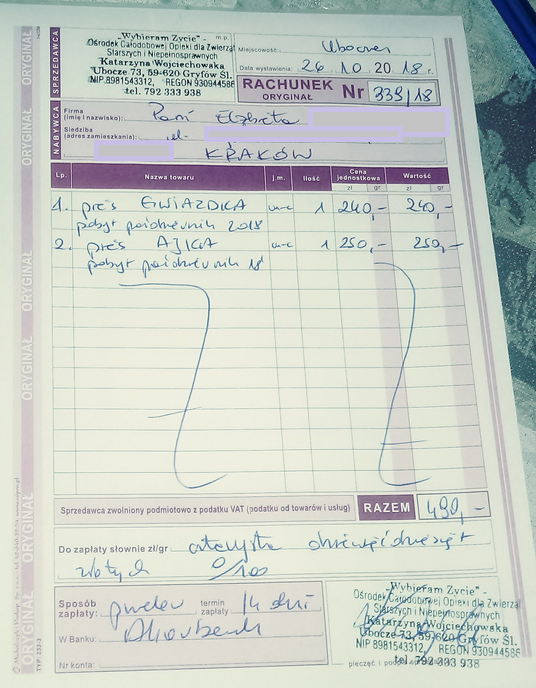 ORYGINAŁ
SPRZEDAWCA
„Wybieram Życie" -
Ośrodek Całodobowej Opieki dla Zwierząt
Starszych i Niepełnosprawnych
Katarzyna Wojciechowska
Ubocze 73, 59-620 Gryfów Śl.
NIP 8981543312, REGON 930944586
tel. 792 333 938
m.p.
Miejscowość: Ubocze
Data wystawienia: 26.10.2018 r.
RACHUNEK Nr 339/18
ORYGINAŁ
NABYWCA
Firma
(imię i nazwisko): Pani Elżbieta
Siedziba
(adres zamieszkania): ul.
KRAKÓW
Lp. Nazwa towaru j.m. Ilość Cena jednostkowa Wartość
zł gr zł gr
1. pies GWIAZDKA 1 240,- 240,-
pobyt październik 2018
2. pies AJKA 1 250,- 250,-
pobyt październik 18
Sprzedawca zwolniony podmiotowo z podatku VAT (podatku od towarów i usług) RAZEM 490,-
Do zapłaty słownie zł/gr czterysta dziewięćdziesiąt
złotych 0/100
Sposób zapłaty: przelew termin zapłaty 14 dni
W Banku:
Nr konta:
„Wybieram Życie" -
Ośrodek Całodobowej Opieki dla Zwierząt
Starszych i Niepełnosprawnych
Katarzyna Wojciechowska
Ubocze 73, 59-620 Gryfów Śl.
NIP 8981543312, REGON 930944586
tel. 792 333 938
pieczęć i podpis
TYP: 233-3